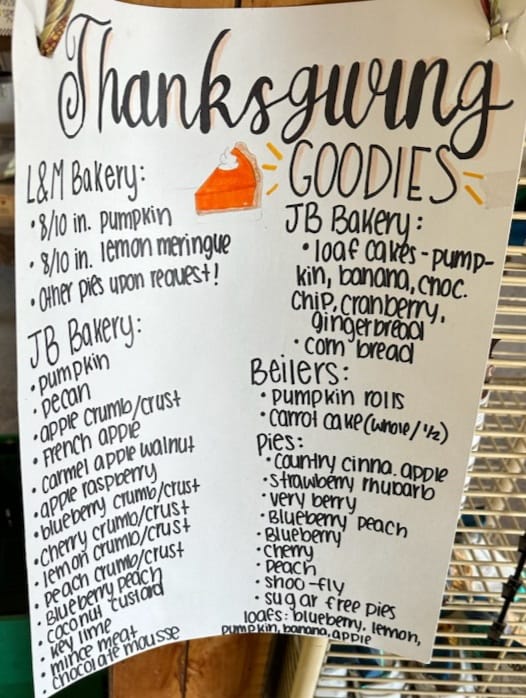 Thanksgiving
GOODIES
L&M Bakery:
• 8/10 in. pumpkin
• 8/10 in. lemon meringue
• Other pies upon request!
JB Bakery:
• pumpkin
• pecan
• apple crumb/crust
• French apple
• carmel apple walnut
• apple raspberry
• blueberry crumb/crust
• cherry crumb/crust
• lemon crumb/crust
• peach crumb/crust
• Blueberry peach
• coconut custard
• key lime
• mince meat
• chocolate mousse
JB Bakery:
• loaf cakes - pump-
kin, banana, choc.
chip, cranberry,
gingerbread
• corn bread
Beilers:
• pumpkin rolls
• carrot cake (whole / 1/2)
Pies:
• country cinna. apple
• strawberry rhubarb
• very berry
• Blueberry peach
• Blueberry
• cherry
• peach
• shoo-fly
• sugar free pies
loafs: blueberry, lemon,
pumpkin, banana, apple